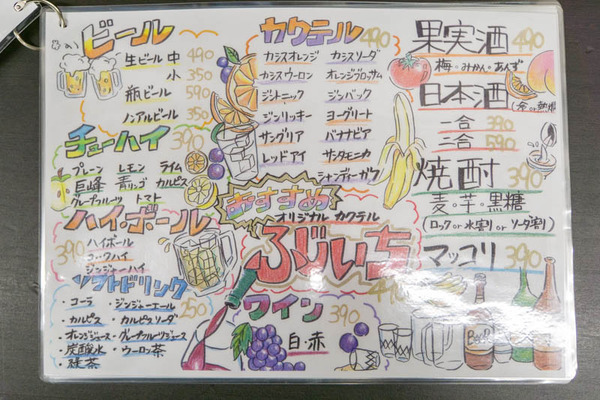 ビール
生ビール 中 490
小 350
瓶ビール 590
ノンアルビール 350
チューハイ 390
プレーン レモン ライム
巨峰 青リンゴ カルピス
グレープフルーツ トマト
ハイ・ボール
390
ハイボール
コークハイ
ジンジャーハイ
ソフトドリンク
250
・コーラ ・ジンジャーエール
・カルピス ・カルピスソーダ
・オレンジジュース ・グレープフルーツジュース
・炭酸水 ・ウーロン茶
・緑茶
カクテル 490
カシスオレンジ カシスソーダ
カシスウーロン オレンジブロッサム
ジントニック ジンバック
ジンリッキー ヨーグリート
サングリア バナナビア
レッドアイ サンタモニカ
シャンディーガフ
おすすめ
オリジナル カクテル
ふじいち
490
ワイン 390
白・赤
果実酒 490
梅・みかん・あんず
日本酒
一合 390
二合 590
焼酎 390
麦・芋・黒糖
(ロック or 水割り or ソーダ割り)
マッコリ 390